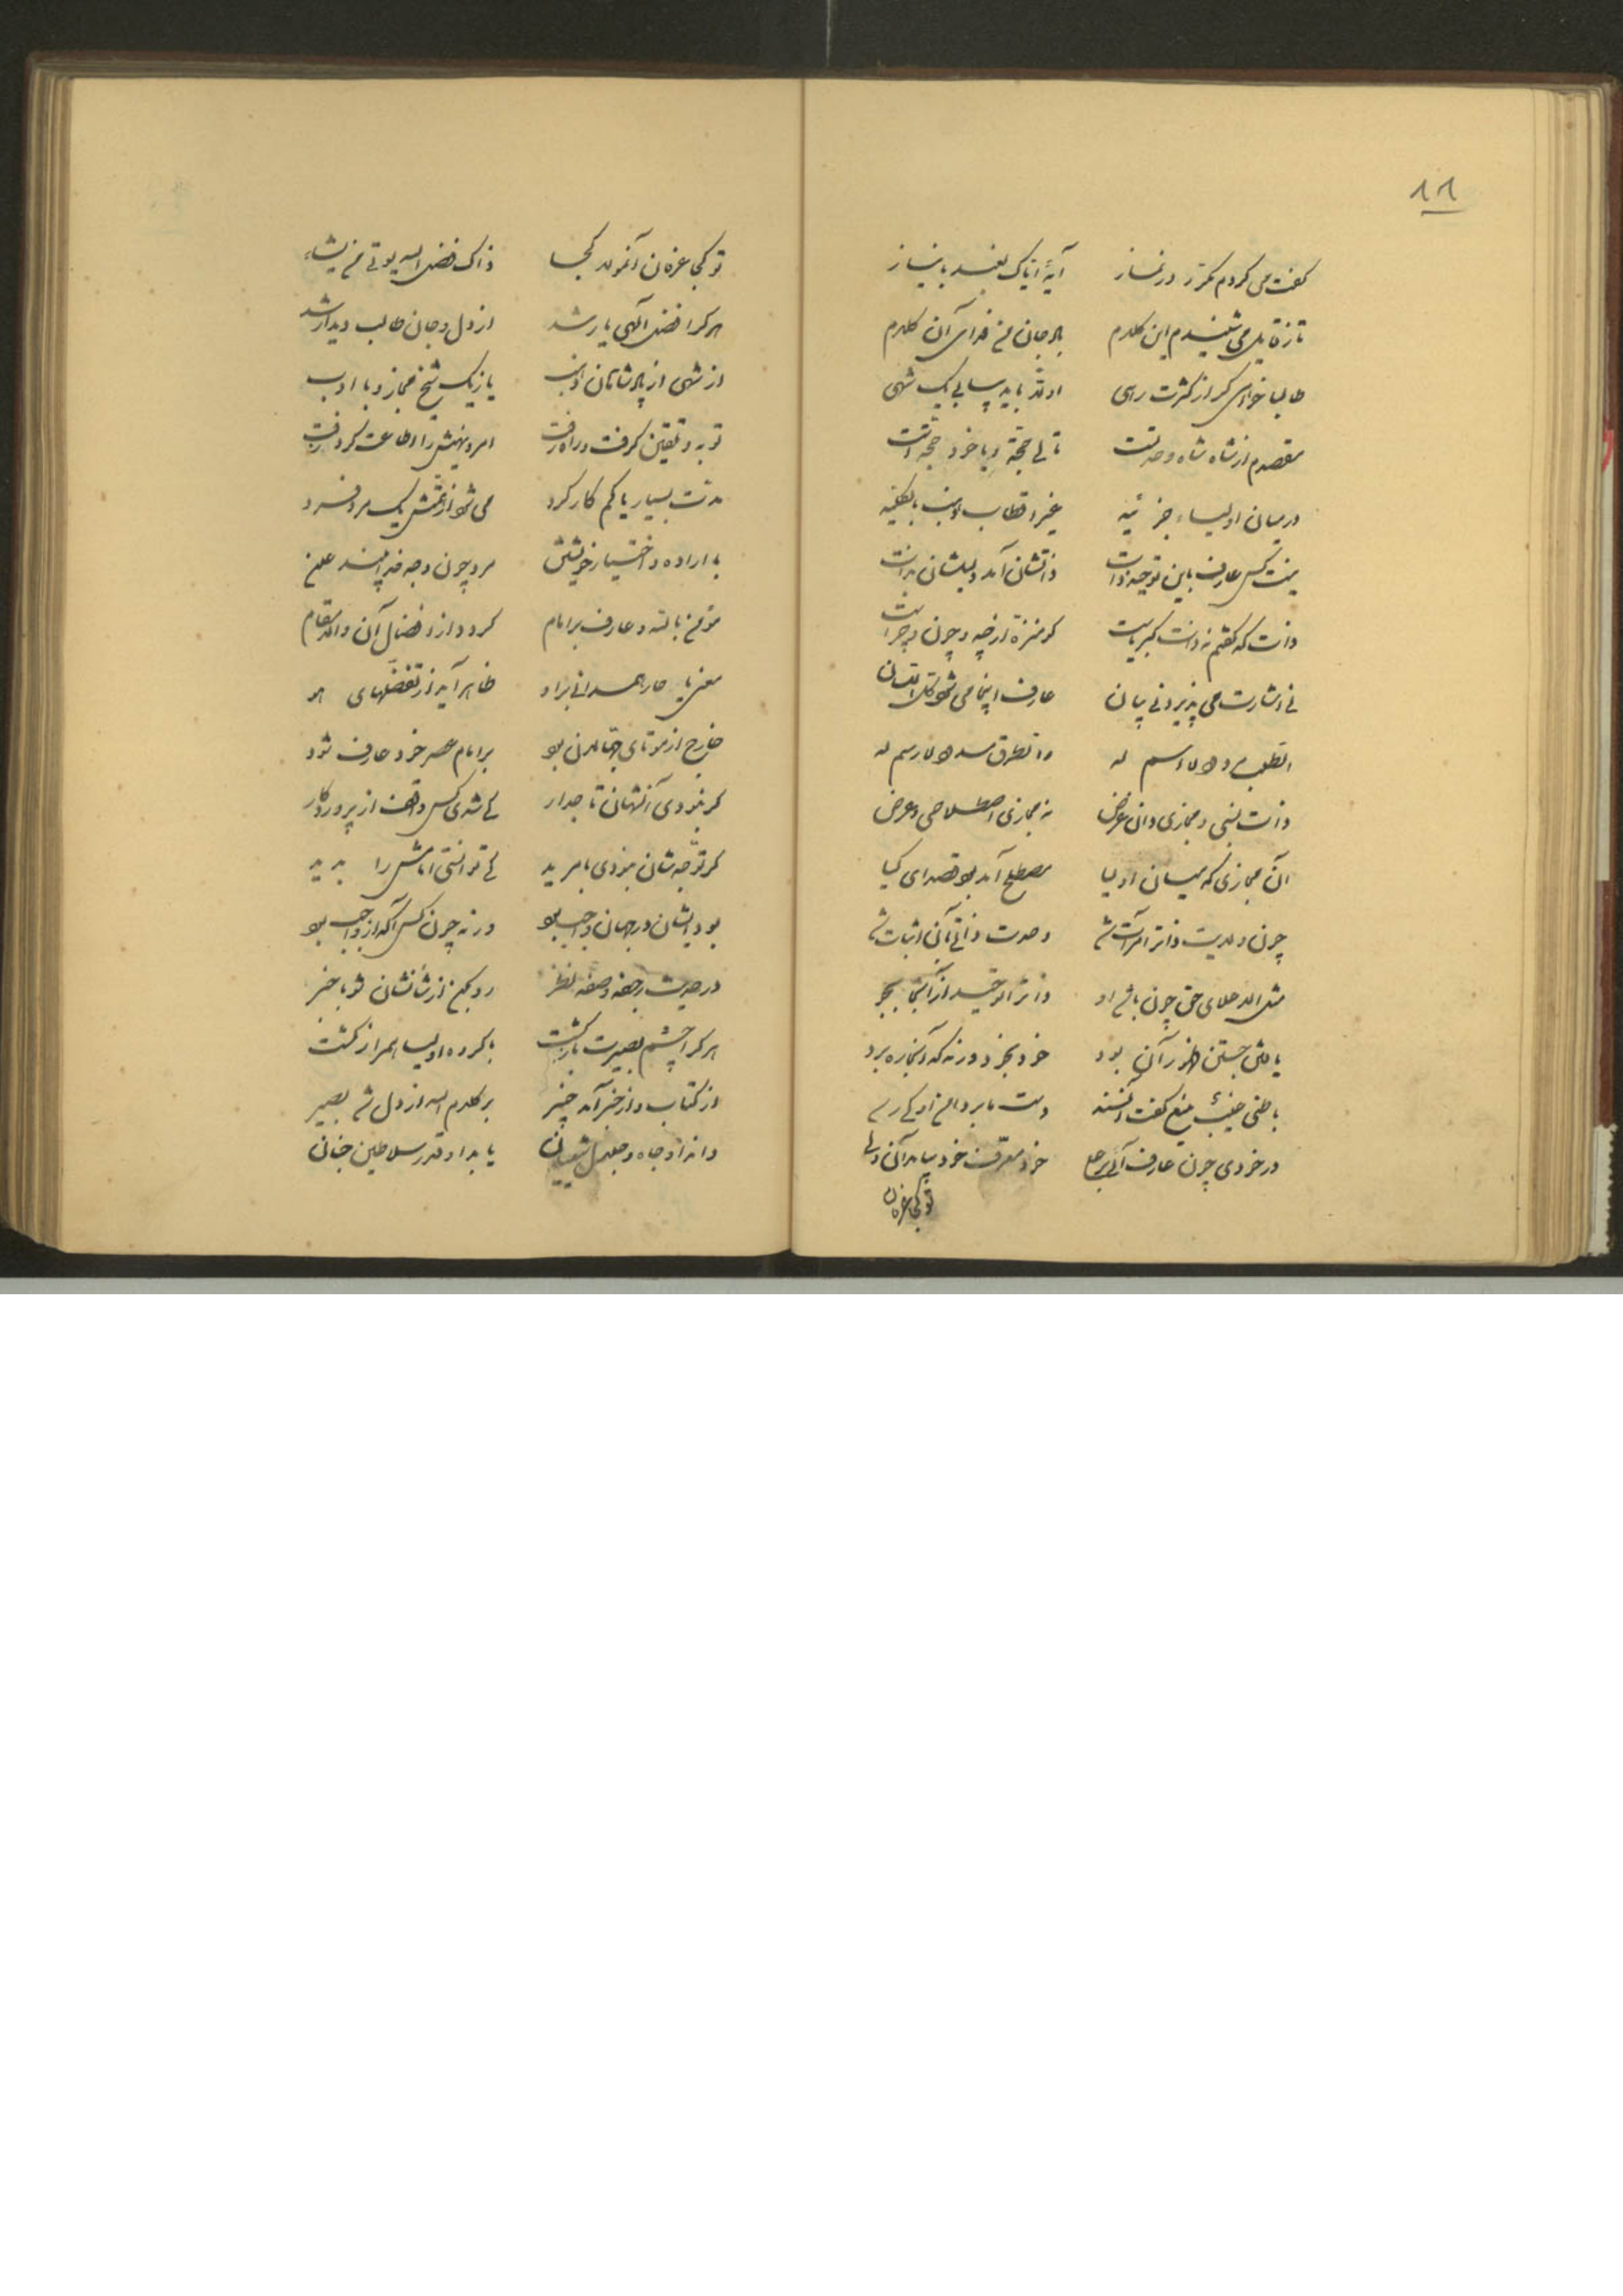 ۱۸۱
گفت می کردم مکرر در نماز آیهٔ ایاک نعبد با نیاز
تا ز قایل می شنیدم این کلام ای جان من فدای آن کلام
طالبا خواهی گر از کثرت رهی اولا باید بیابی یک شهی
مقصدم از شاه شاه وحدتست
در میان اولیاء جزئیه غیر اقطاب
نیست کس عارف باین توحید ذات ذاتشان آمد دلیلشان بذات
ذات که گفتم نه ذات کبریاست کو منزه از چه و چون و چراست
نی اشارت می پذیرد نی بیان عارف اینجا می شود کل اللسان
الطلب و لا اسم له و الطرق و لا رسم له
ذات نسبی و مجازی دان غرض نه مجازی اصطلاحی و عرض
آن مجازی که میان اولیا مصطلح آمد بود قصد ای کیا
چون ولایت ذات را مرآت شد وحدت ذاتی بآن اثبات شد
مثل الله علای حق چون باشد او ذات را توحید از آنجا بجو
یافتن جستن طور آن بود خود بخود ورنه که آنجا ره برد
باطنی غیب منیع گفت آنسند دست ما بر دامن او کی رسد
در خودی چون عارف آئی بر علا خود معرف خود بیامد آن ولا
تو کجا عرفان
تو کجا عرفان آنمولا کجا ذاک فضل الله یوتی من یشاء
هر کرا فضل الهی یار شد از دل و جان طالب دیدار شد
از شهی از پادشاهان یا ز یک شیخ مجاز و با ادب
توبه و تلقین گرفت و راه رفت امر و نهیش را اطاعت کرد
مدت بسیار یا کم کار کرد می شود از همتش یک مرد فرد
با اراده و اختیار خویشتن مرد چون وجه خدا بیند علن
مؤمن بالله و عارف بر امام گردد از افضال آن والا مقام
معنی یا حار همدانی بر او ظاهر آید از تفضلهای هو
خارج از موتای جاهلان بود بر امام عصر خود عارف شود
گر نبودی آنشهان تاجدار کی شدی کس واقف از پروردگار
گر توجه شان نبودی با مرید کی توانستی امامش را بدید
بود ایشان در جهان واجب بود ورنه چون کس آگه از واجب بود
در حدیث نظر رو بکن از شانشان شو با خبر
هر کرا چشم بصیرت باز گشت با گروه اولیا همراز گشت
از کتاب و از خبر آمد خبیر بر کلام الله از دل شد بصیر
داند او جاه و جلال شیعیان یابد او قدر سلاطین جنان